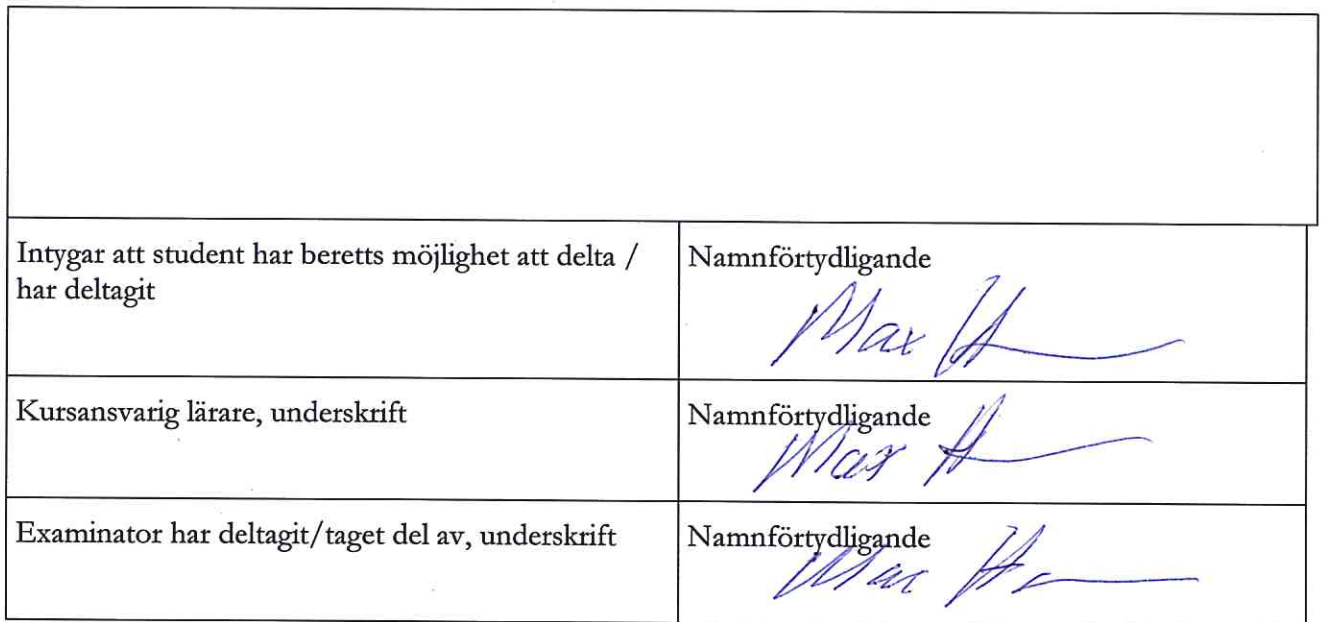 Intygar att student har beretts möjlighet att delta /
har deltagit
Namnförtydligande
Max
Kursansvarig lärare, underskrift
Namnförtydligande
Max
Examinator har deltagit/taget del av, underskrift
Namnförtydligande
Max